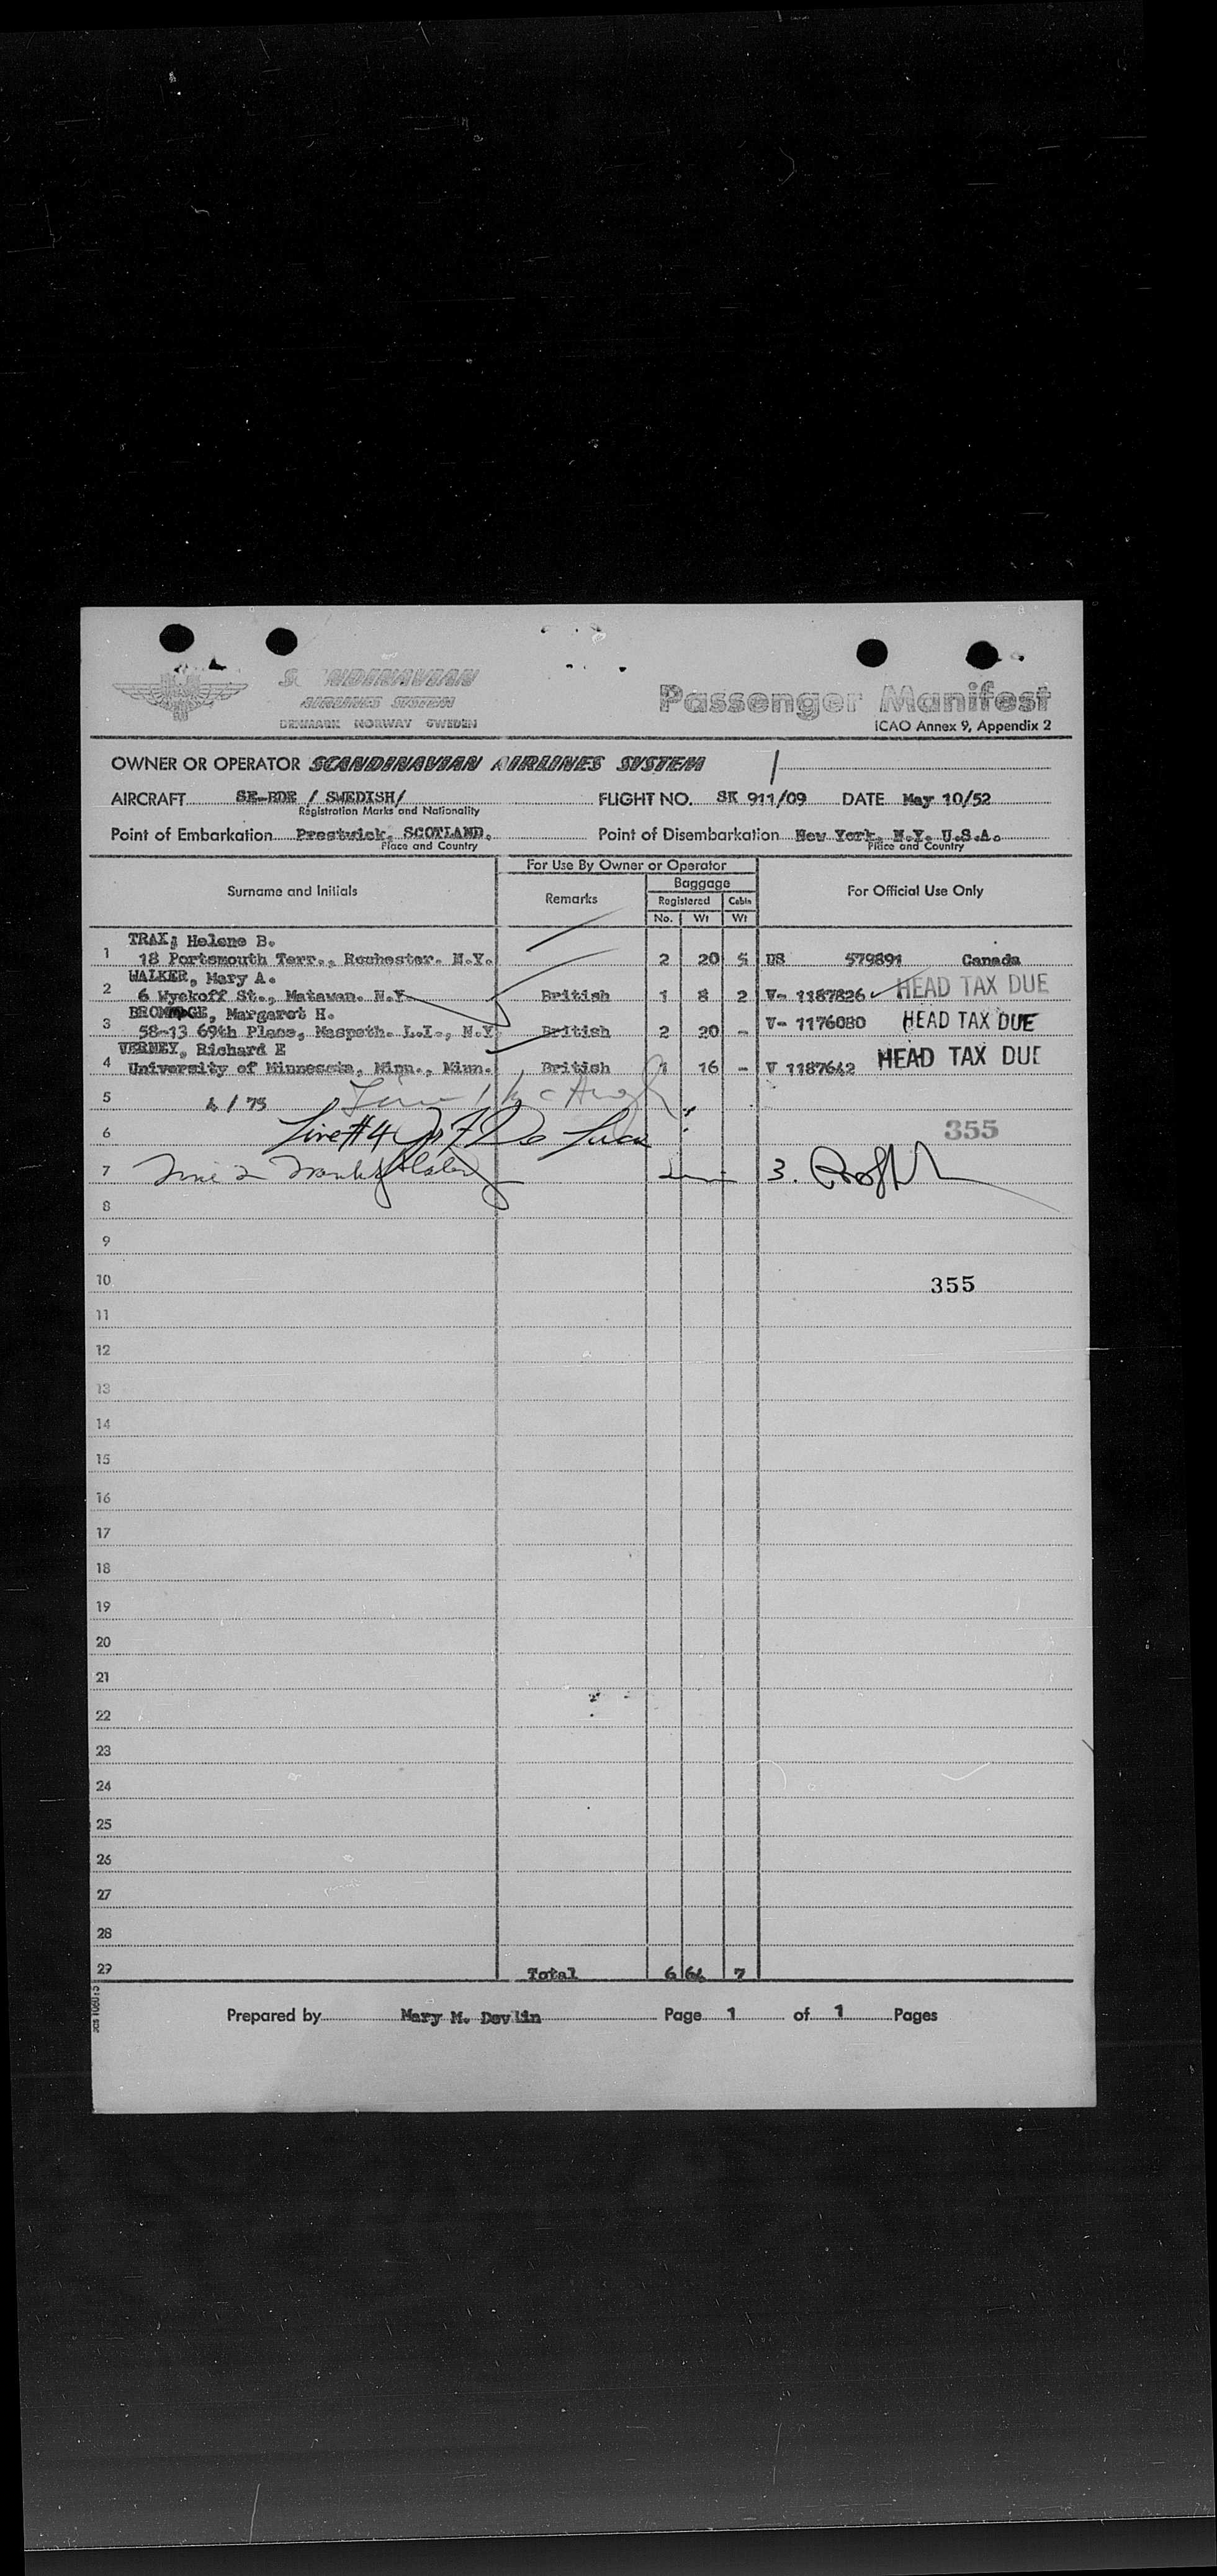 SCANDINAVIAN
AIRLINES SYSTEM
DENMARK NORWAY SWEDEN
Passenger Manifest
ICAO Annex 9, Appendix 2
OWNER OR OPERATOR SCANDINAVIAN AIRLINES SYSTEM
AIRCRAFT SE-BDE / SWEDISH/ FLIGHT NO. SK 911/09 DATE May 10/52
Registration Marks and Nationality
Point of Embarkation Prestwick, SCOTLAND. Point of Disembarkation New York, N.Y. U.S.A.
Place and Country Place and Country
For Use By Owner or Operator
Surname and Initials Remarks Baggage For Official Use Only
Registered Cabin
No. Wt Wt
TRAX; Helene B.
1 18 Portsmouth Terr., Rochester. N.Y. 2 20 5 US 579891 Canada
WALKER, Mary A.
2 6 Wyckoff St., Matawan. N.Y. British 1 8 2 V- 1187826 HEAD TAX DUE
BROMMAGE, Margaret H.
3 58-13 69th Place, Maspeth. L.I., N.Y. British 2 20 - V- 1176080 HEAD TAX DUE
VERNEY, Richard E
4 University of Minnesota, Minn., Minn. British 1 16 - V 1187642 HEAD TAX DUE
5 4 / 75
6 Line #4 De Luca 355
7 3.
8
9
10 355
11
12
13
14
15
16
17
18
19
20
21
22
23
24
25
26
27
28
29 Total 6 64 7
Prepared by Mary M. Devlin Page 1 of 1 Pages